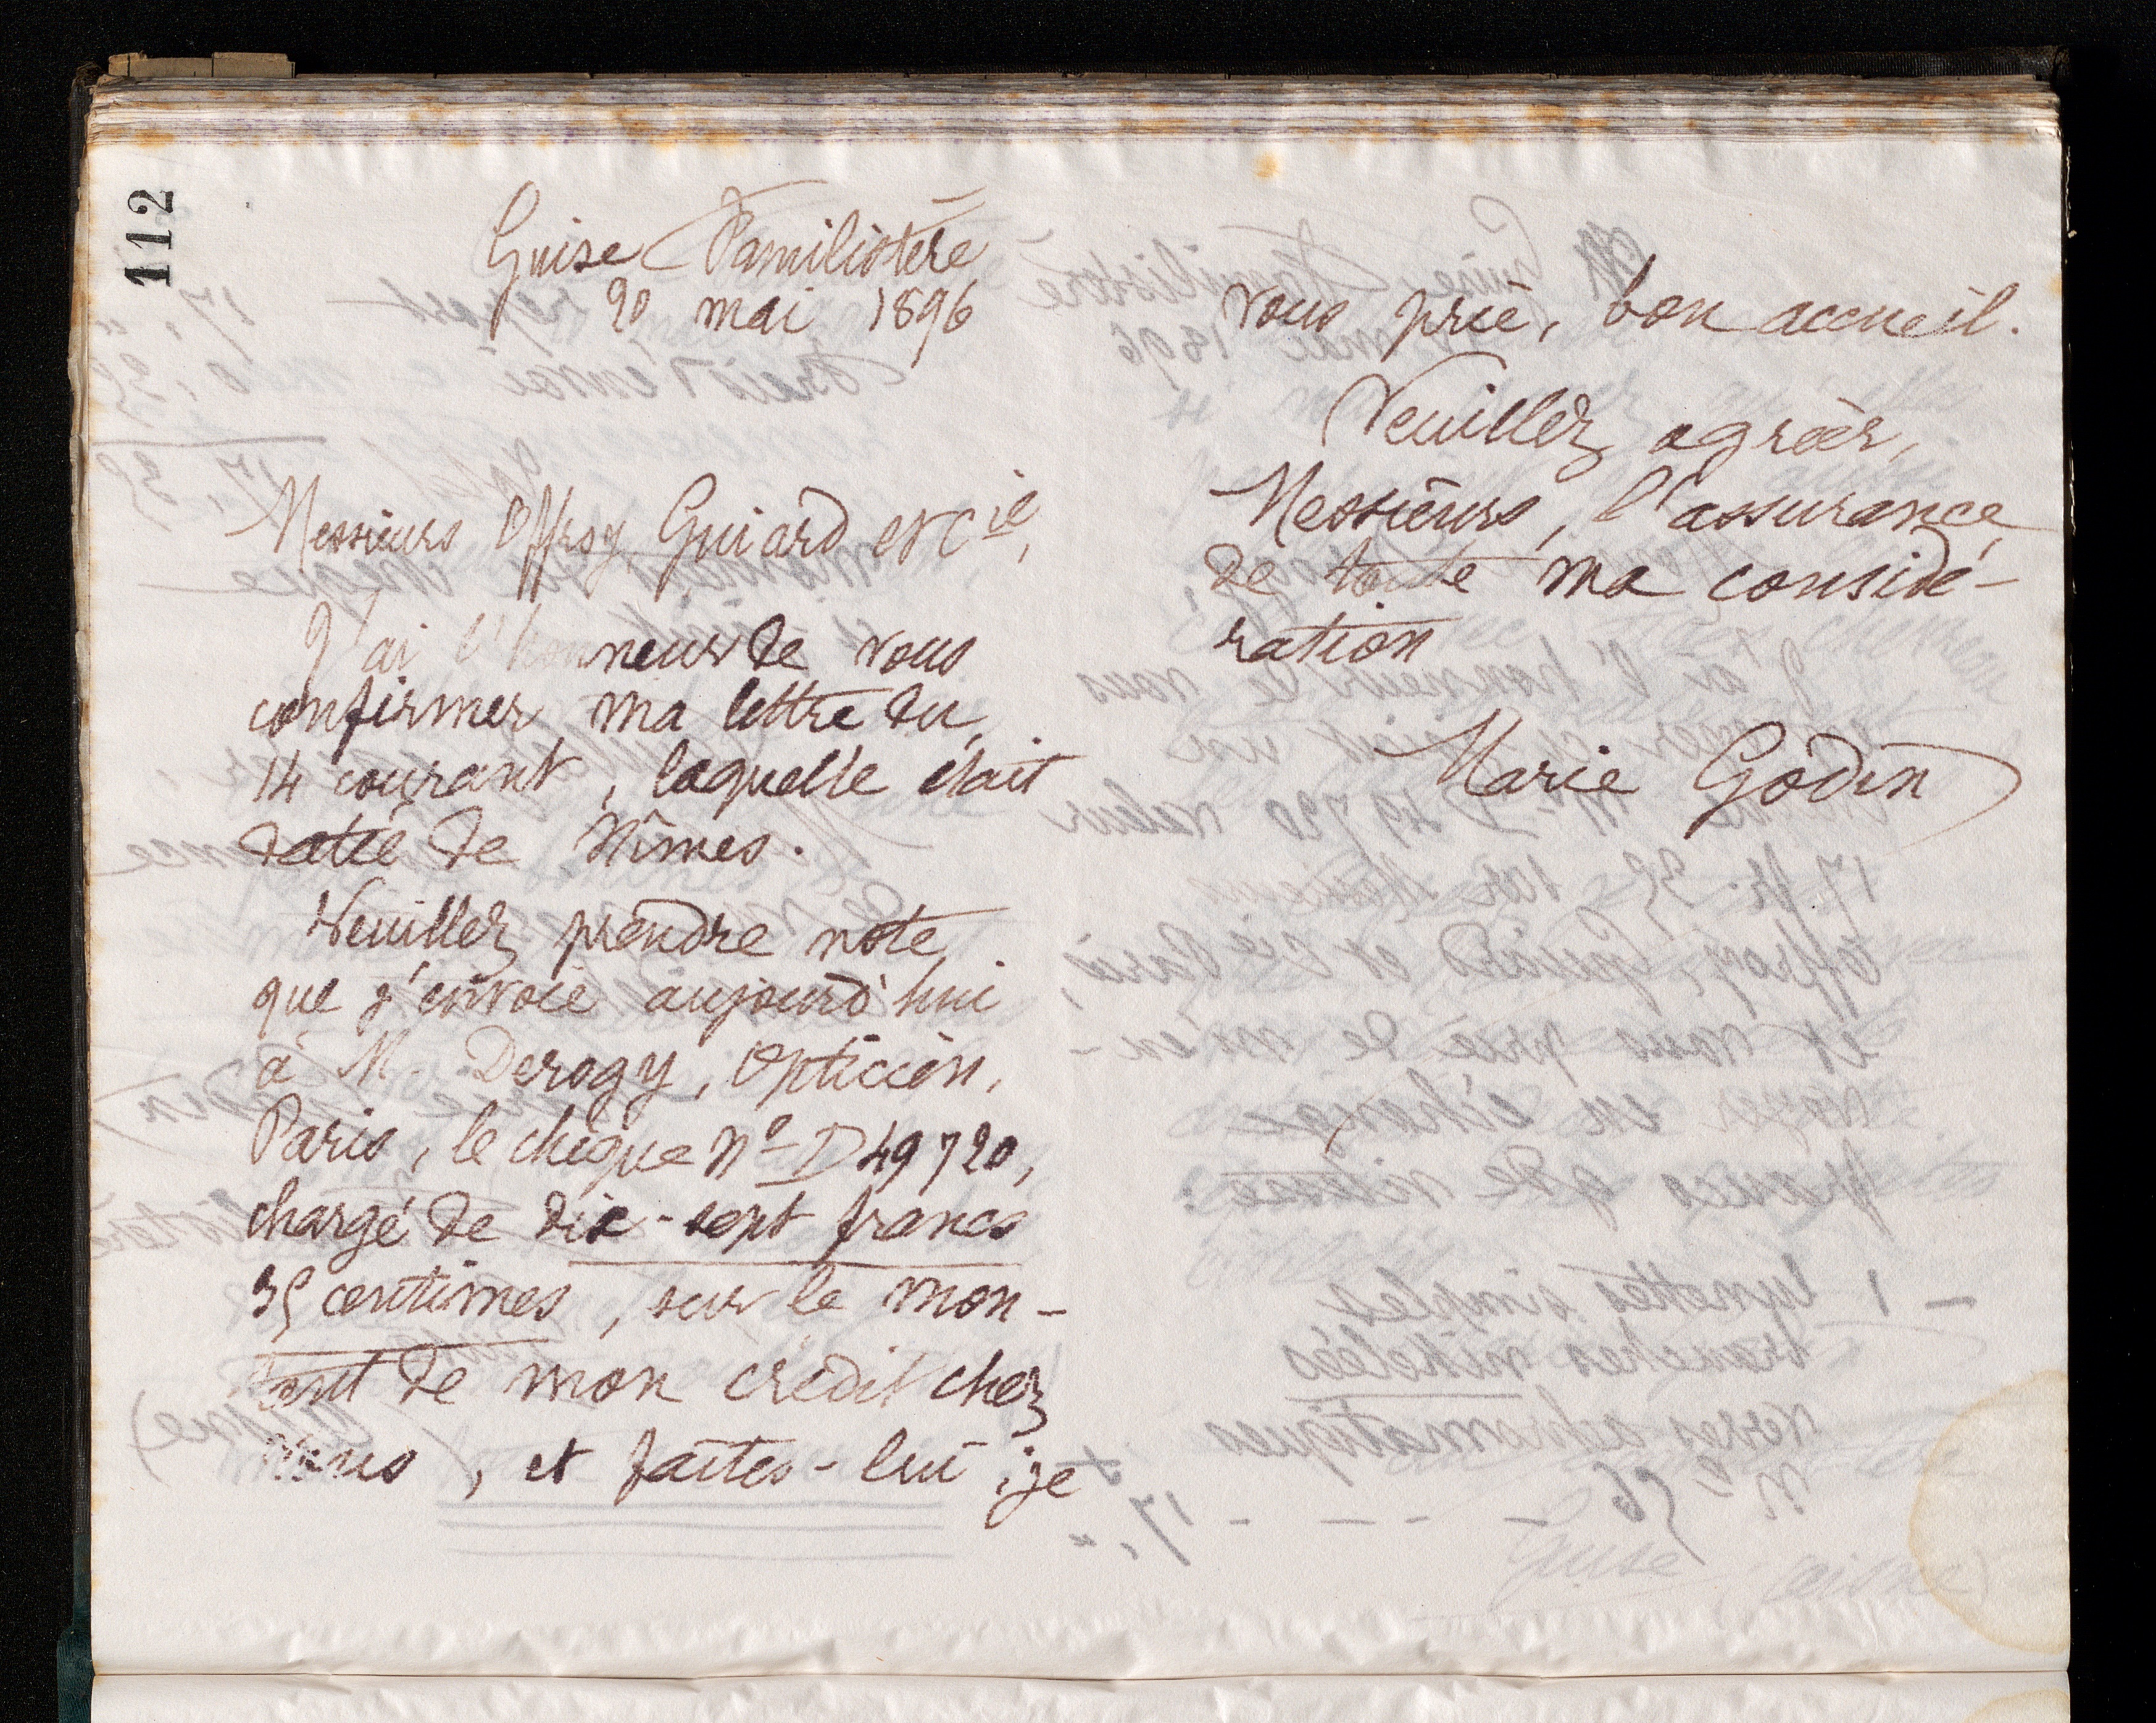 112
Guise Familistère
20 mai 1896
Messieurs Offroy, Guiard et Cie,
J'ai l'honneur de vous
confirmer ma lettre du
14 courant, laquelle était
datée de Nîmes.
Veuillez prendre note
que j'envoie aujourd'hui
à M. Derogy, Opticien,
Paris, le chèque No D 49720,
chargé de dix-sept francs
35 centimes, sur le mon-
tant de mon crédit chez
vous, et faites-lui, je
vous prie, bon accueil.
Veuillez agréer,
Messieurs, l'assurance
de toute ma considé-
ration
Marie Godin